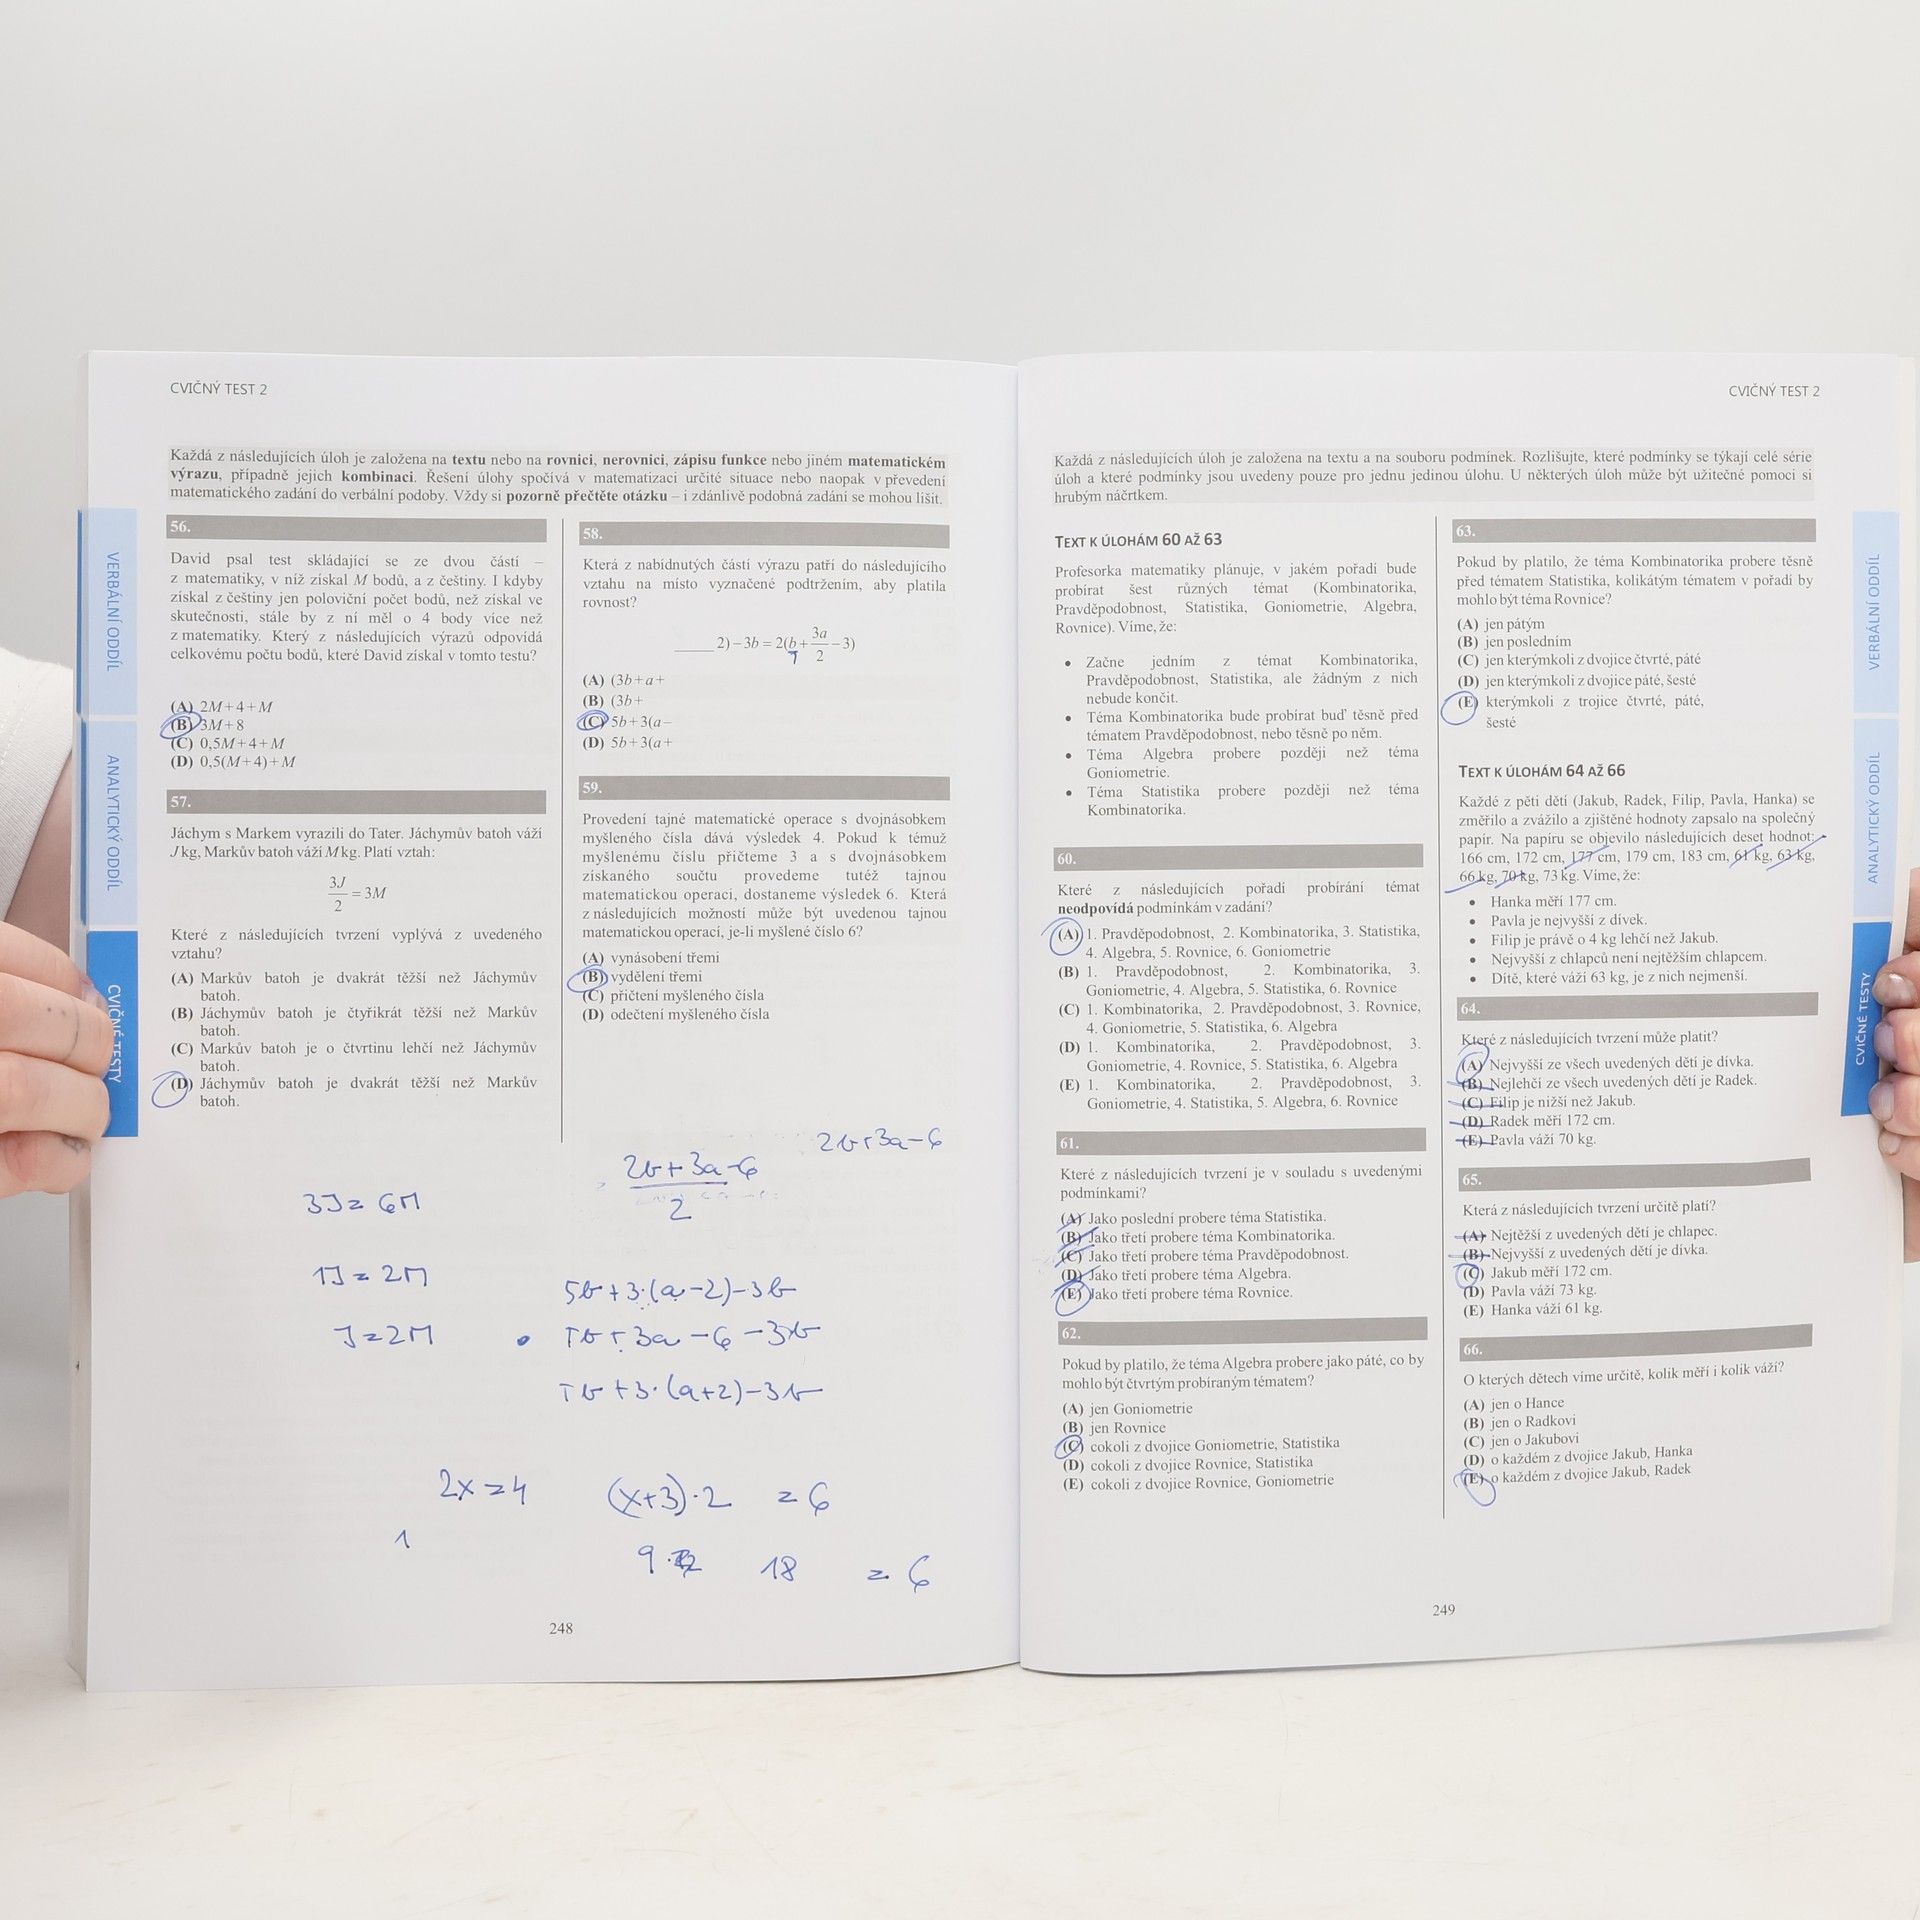 CVIČNÝ TEST 2
Každá z následujících úloh je založena na textu nebo na rovnici, nerovnici, zápisu funkce nebo jiném matematickém
výrazu, případně jejich kombinaci. Řešení úlohy spočívá v matematizaci určité situace nebo naopak v převedení
matematického zadání do verbální podoby. Vždy si pozorně přečtěte otázku – i zdánlivě podobná zadání se mohou lišit.
VERBÁLNÍ ODDÍL
ANALYTICKÝ ODDÍL
CVIČNÉ TESTY
56.
David psal test skládající se ze dvou částí –
z matematiky, v níž získal M bodů, a z češtiny. I kdyby
získal z češtiny jen poloviční počet bodů, než získal ve
skutečnosti, stále by z ní měl o 4 body více než
z matematiky. Který z následujících výrazů odpovídá
celkovému počtu bodů, které David získal v tomto testu?
(A) 2M+4+M
(B) 3M+8
(C) 0,5M+4+M
(D) 0,5(M+4)+M
57.
Jáchym s Markem vyrazili do Tater. Jáchymův batoh váží
J kg, Markův batoh váží M kg. Platí vztah:
3J/2 = 3M
Které z následujících tvrzení vyplývá z uvedeného
vztahu?
(A) Markův batoh je dvakrát těžší než Jáchymův
batoh.
(B) Jáchymův batoh je čtyřikrát těžší než Markův
batoh.
(C) Markův batoh je o čtvrtinu lehčí než Jáchymův
batoh.
(D) Jáchymův batoh je dvakrát těžší než Markův
batoh.
3J = 6M
1J = 2M
J = 2M
58.
Která z nabídnutých částí výrazu patří do následujícího
vztahu na místo vyznačené podtržením, aby platila
rovnost?
_____ 2)−3b = 2(b+3a/2−3)
(A) (3b+a+
(B) (3b+
(C) 5b+3(a−
(D) 5b+3(a+
59.
Provedení tajné matematické operace s dvojnásobkem
myšleného čísla dává výsledek 4. Pokud k témuž
myšlenému číslu přičteme 3 a s dvojnásobkem
získaného součtu provedeme tutéž tajnou
matematickou operaci, dostaneme výsledek 6. Která
z následujících možností může být uvedenou tajnou
matematickou operací, je-li myšlené číslo 6?
(A) vynásobení třemi
(B) vydělení třemi
(C) přičtení myšleného čísla
(D) odečtení myšleného čísla
2b+3a−6
2b+3a−6
2
5b+3·(a−2)−3b
5b+3a−6−3b
5b+3·(a+2)−3b
2x=4
(x+3)·2 = 6
1
9·2 18 = 6
248
CVIČNÝ TEST 2
Každá z následujících úloh je založena na textu a na souboru podmínek. Rozlišujte, které podmínky se týkají celé série
úloh a které podmínky jsou uvedeny pouze pro jednu jedinou úlohu. U některých úloh může být užitečné pomoci si
hrubým náčrtkem.
TEXT K ÚLOHÁM 60 AŽ 63
Profesorka matematiky plánuje, v jakém pořadí bude
probírat šest různých témat (Kombinatorika,
Pravděpodobnost, Statistika, Goniometrie, Algebra,
Rovnice). Víme, že:
• Začne jedním z témat Kombinatorika,
Pravděpodobnost, Statistika, ale žádným z nich
nebude končit.
• Téma Kombinatorika bude probírat buď těsně před
tématem Pravděpodobnost, nebo těsně po něm.
• Téma Algebra probere později než téma
Goniometrie.
• Téma Statistika probere později než téma
Kombinatorika.
60.
Které z následujících pořadí probírání témat
neodpovídá podmínkám v zadání?
(A) 1. Pravděpodobnost, 2. Kombinatorika, 3. Statistika,
4. Algebra, 5. Rovnice, 6. Goniometrie
(B) 1. Pravděpodobnost, 2. Kombinatorika, 3.
Goniometrie, 4. Algebra, 5. Statistika, 6. Rovnice
(C) 1. Kombinatorika, 2. Pravděpodobnost, 3. Rovnice,
4. Goniometrie, 5. Statistika, 6. Algebra
(D) 1. Kombinatorika, 2. Pravděpodobnost, 3.
Goniometrie, 4. Rovnice, 5. Statistika, 6. Algebra
(E) 1. Kombinatorika, 2. Pravděpodobnost, 3.
Goniometrie, 4. Statistika, 5. Algebra, 6. Rovnice
61.
Které z následujících tvrzení je v souladu s uvedenými
podmínkami?
(A) Jako poslední probere téma Statistika.
(B) Jako třetí probere téma Kombinatorika.
(C) Jako třetí probere téma Pravděpodobnost.
(D) Jako třetí probere téma Algebra.
(E) Jako třetí probere téma Rovnice.
62.
Pokud by platilo, že téma Algebra probere jako páté, co by
mohlo být čtvrtým probíraným tématem?
(A) jen Goniometrie
(B) jen Rovnice
(C) cokoli z dvojice Goniometrie, Statistika
(D) cokoli z dvojice Rovnice, Statistika
(E) cokoli z dvojice Rovnice, Goniometrie
63.
Pokud by platilo, že téma Kombinatorika probere těsně
před tématem Statistika, kolikátým tématem v pořadí by
mohlo být téma Rovnice?
(A) jen pátým
(B) jen posledním
(C) jen kterýmkoli z dvojice čtvrté, páté
(D) jen kterýmkoli z dvojice páté, šesté
(E) kterýmkoli z trojice čtvrté, páté,
šesté
TEXT K ÚLOHÁM 64 AŽ 66
Každé z pěti dětí (Jakub, Radek, Filip, Pavla, Hanka) se
změřilo a zvážilo a zjištěné hodnoty zapsalo na společný
papír. Na papíru se objevilo následujících deset hodnot:
166 cm, 172 cm, 177 cm, 179 cm, 183 cm, 61 kg, 63 kg,
66 kg, 70 kg, 73 kg. Víme, že:
• Hanka měří 177 cm.
• Pavla je nejvyšší z dívek.
• Filip je právě o 4 kg lehčí než Jakub.
• Nejvyšší z chlapců není nejtěžším chlapcem.
• Dítě, které váží 63 kg, je z nich nejmenší.
64.
Které z následujících tvrzení může platit?
(A) Nejvyšší ze všech uvedených dětí je dívka.
(B) Nejlehčí ze všech uvedených dětí je Radek.
(C) Filip je nižší než Jakub.
(D) Radek měří 172 cm.
(E) Pavla váží 70 kg.
65.
Která z následujících tvrzení určitě platí?
(A) Nejtěžší z uvedených dětí je chlapec.
(B) Nejvyšší z uvedených dětí je dívka.
(C) Jakub měří 172 cm.
(D) Pavla váží 73 kg.
(E) Hanka váží 61 kg.
66.
O kterých dětech víme určitě, kolik měří i kolik váží?
(A) jen o Hance
(B) jen o Radkovi
(C) jen o Jakubovi
(D) o každém z dvojice Jakub, Hanka
(E) o každém z dvojice Jakub, Radek
VERBÁLNÍ ODDÍL
ANALYTICKÝ ODDÍL
CVIČNÉ TESTY
249